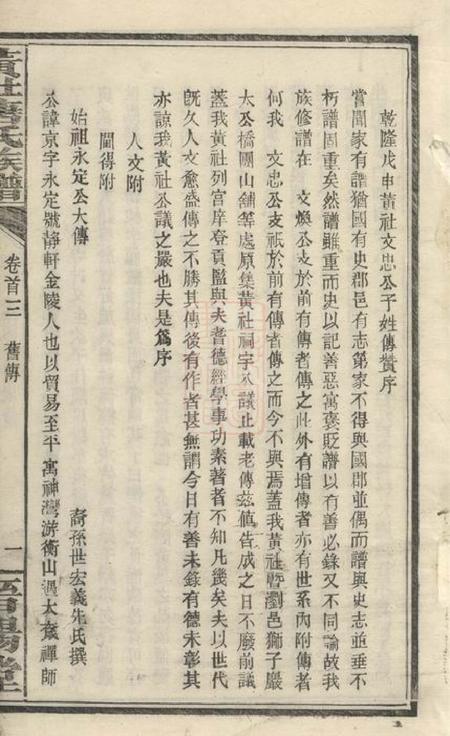 乾隆戊申黃社文忠公子姓傳贊序
嘗聞家有譜猶國有史郡邑有志第家不得與國郡並偶而譜與史志並垂不
朽譜固重矣然譜雖重而史以記善惡寓褒貶譜以有善必錄又不同論故我
族修譜在 文煥公支於前有傳者傳之此外有增傳者亦有世系內附傳者
何我 文忠公支祇於前有傳者傳之而今不與焉蓋我黃社暨瀏邑獅子巖
太公橋團山舖等處原集黃社祠字公議止載老傳茲値告成之日不廢前議
蓋我黃社列宮庠登貢監與夫耆德經學事功素著者不知凡幾矣夫以世代
旣久人文愈盛傳之不勝其傳後有作者甚無謂今日有善未錄有德未彰其
亦諒我黃社公議之嚴也夫是爲序
人文附
閫得附
始祖永定公大傳
裔孫世宏義先氏撰
公諱京字永定號靜軒金陵人也以貿易至平寓神灣游衡山遇太庵禪師
黃社 氏族譜
卷首三 舊傳
一
堂